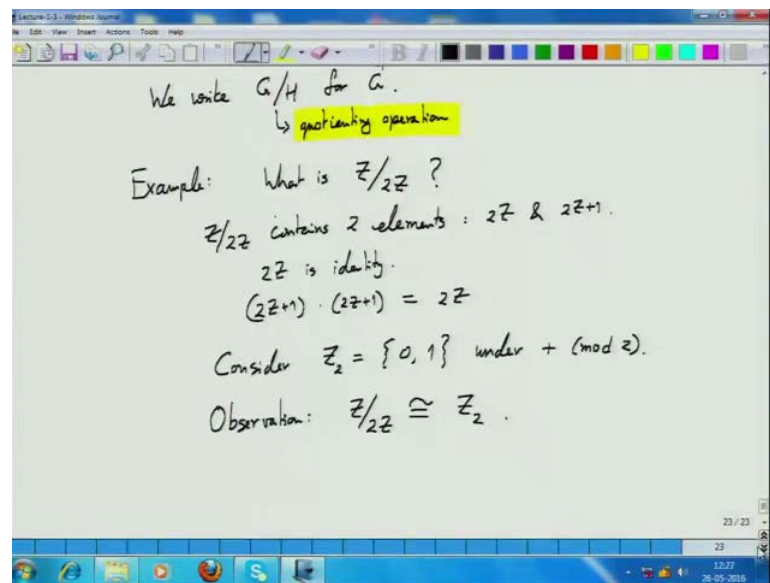 Lecture-1-3 - Windows Journal
Edit View Insert Actions Tools Help
We write G/H for G.
↳ quotienting operation
Example: What is Z/2Z ?
Z/2Z contains 2 elements : 2Z & 2Z+1.
2Z is identity.
(2Z+1) · (2Z+1) = 2Z
Consider Z₂ = {0, 1} under + (mod 2).
Observation: Z/2Z ≅ Z₂ .
23 / 23
23
12:27
26-05-2016